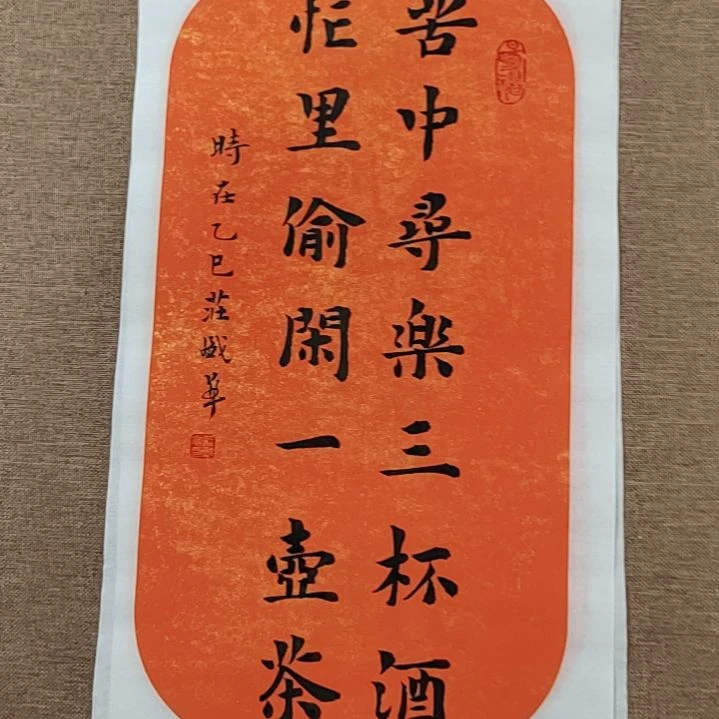 苦中尋楽三杯酒
忙里偷閑一壺茶
時在乙巳莊盛華